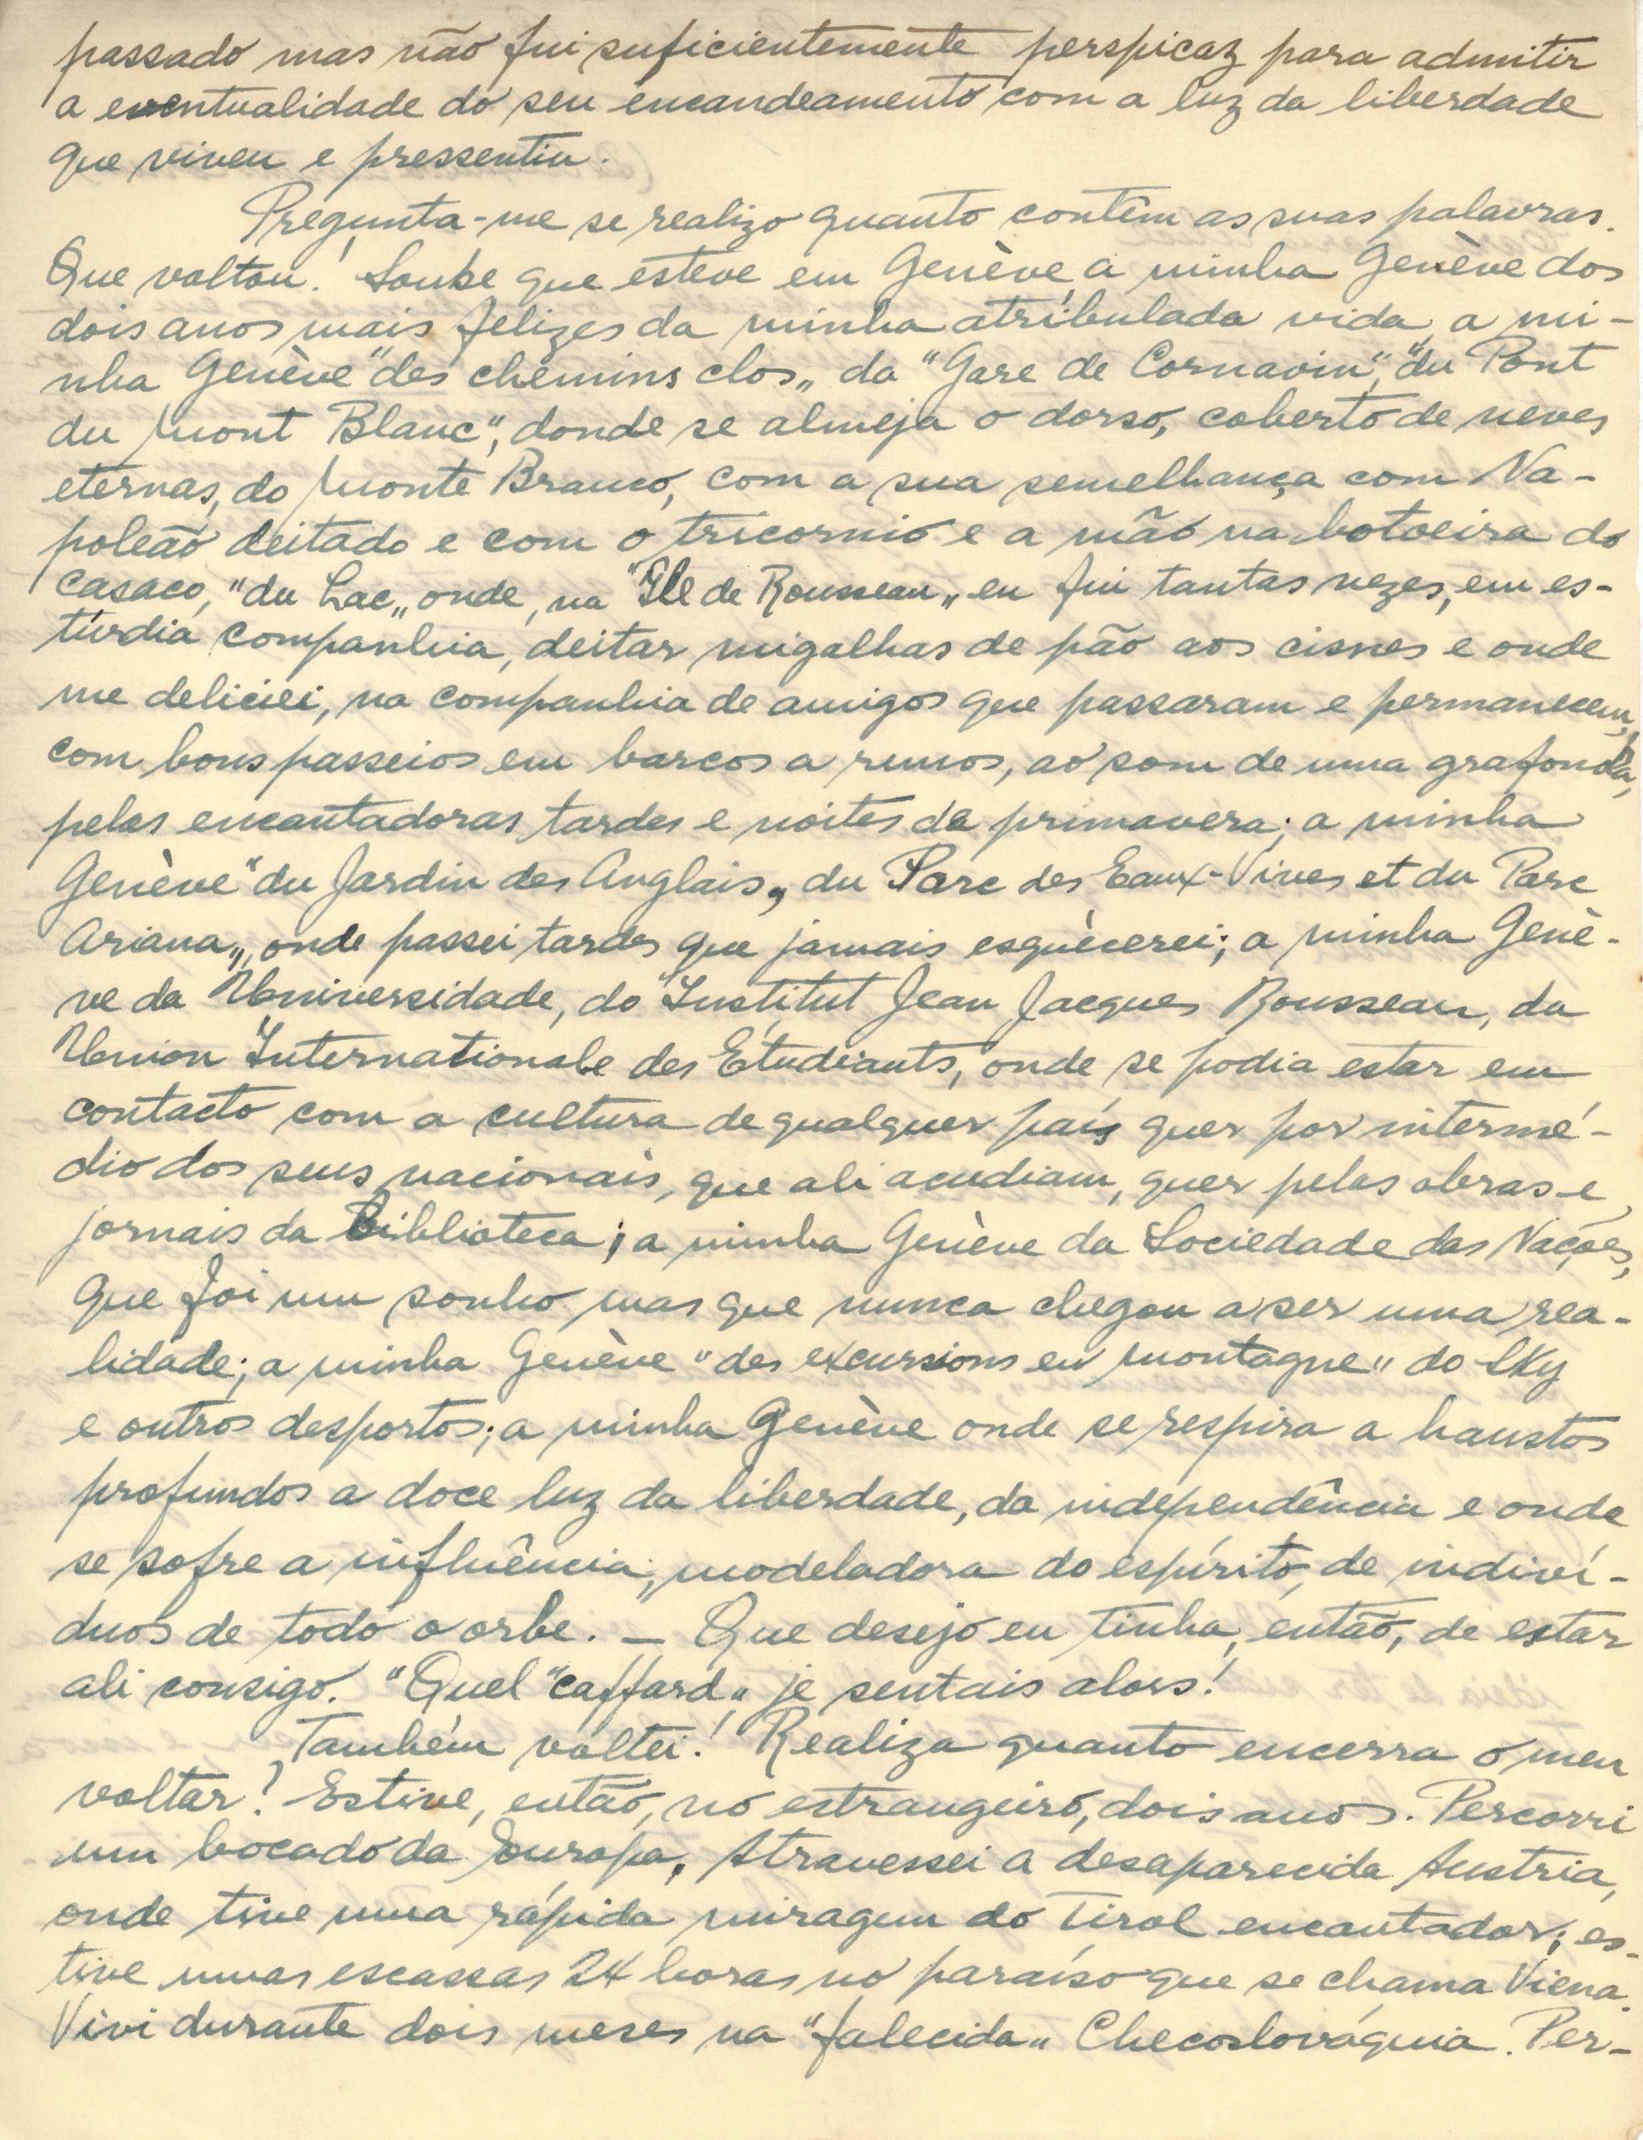 passado mas não fui suficientemente perspicaz para admitir
a eventualidade do seu encandeamento com a luz da liberdade
que viveu e pressentiu.
Pregunta-me se realizo quanto contêm as suas palavras.
Que voltou! Soube que esteve em Genève, a minha Genève dos
dois anos mais felizes da minha atribulada vida, a mi-
nha Genève "des chemins clos„ da "Gare de Cornavin", "du Pont
du Mont Blanc", donde se almeja o dorso, coberto de neves
eternas, do Monte Branco, com a sua semelhança com Na-
poleão deitado e com o tricornio e a mão na botoeira do
casaco, "du Lac„ onde, na "Ile de Rousseau„ eu fui tantas vezes, em es-
túrdia companhia, deitar migalhas de pão aos cisnes e onde
me deliciei, na companhia de amigos que passaram e permanecem,
com bons passeios em barcos a remos, ao som de uma grafonola,
pelas encantadoras tardes e noites de primavera; a minha
Genève "du Jardin des Anglais„ du Parc des Eaux-Vives et du Parc
Ariana„, onde passei tardes que jamais esquècerei; a minha Genè-
ve da Universidade, do "Institut Jean Jacques Rousseau, da
Union Internationale des Étudiants, onde se podia estar em
contacto com a cultura de qualquer país quer por intermé-
dio dos seus nacionais, que ali acudiam, quer pelas obras e
jornais da Biblioteca; a minha Genève da Sociedade das Nações,
que foi um sonho mas que nunca chegou a ser uma rea-
lidade; a minha Genève "des excursions en montagne" do Sky
e outros desportos; a minha Genève onde se respira a haustos
profundos a doce luz da liberdade, da independência e onde
se sofre a influência, modeladora do espírito, de indiví-
duos de todo o orbe. — Que desejo eu tinha, então, de estar
ali consigo. "Quel "caffard„ je sentais alors!
Também voltei! Realiza quanto encerra o meu
voltar? Estive, então, no estrangeiro, dois anos. Percorri
um bocado da Europa. Atravessei a desaparecida Austria,
onde tive uma rápida miragem do Tirol encantador; es-
tive umas escassas 24 horas no paraíso que se chama Viena.
Vivi durante dois meses na "falecida„ Checoslováquia. Per-